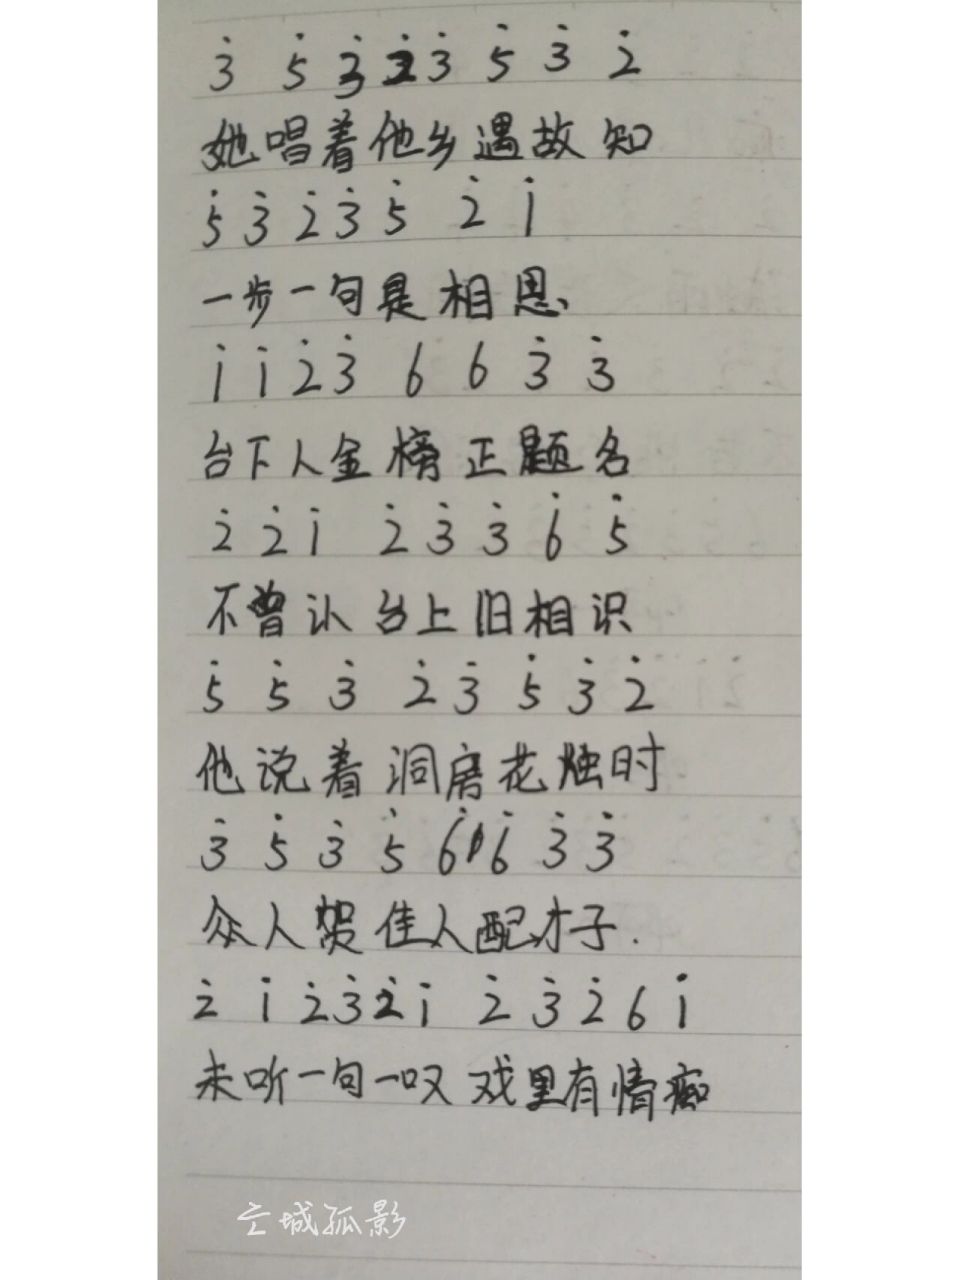 3̇ 5̇ 3̇ 2̇ 3̇ 5̇ 3̇ 2̇
她唱着他乡遇故知
5̇ 3̇ 2̇ 3̇ 5̇ 2̇ 1̇
一步一句是相思
1̇ 1̇ 2̇ 3̇ 6 6 3̇ 3̇
台下人金榜正题名
2̇ 2̇ 1̇ 2̇ 3̇ 3̇ 6̇ 5̇
不曾认台上旧相识
5̇ 5̇ 3̇ 2̇ 3̇ 5̇ 3̇ 2̇
他说着洞房花烛时
3̇ 5̇ 3̇ 5̇ 6̇ 6̇ 3̇ 3̇
众人贺佳人配才子.
2̇ 1̇ 2̇ 3̇ 2̇ 1̇ 2̇ 3̇ 2̇ 6 1̇
未听一句一叹戏里有情痴
空城孤影